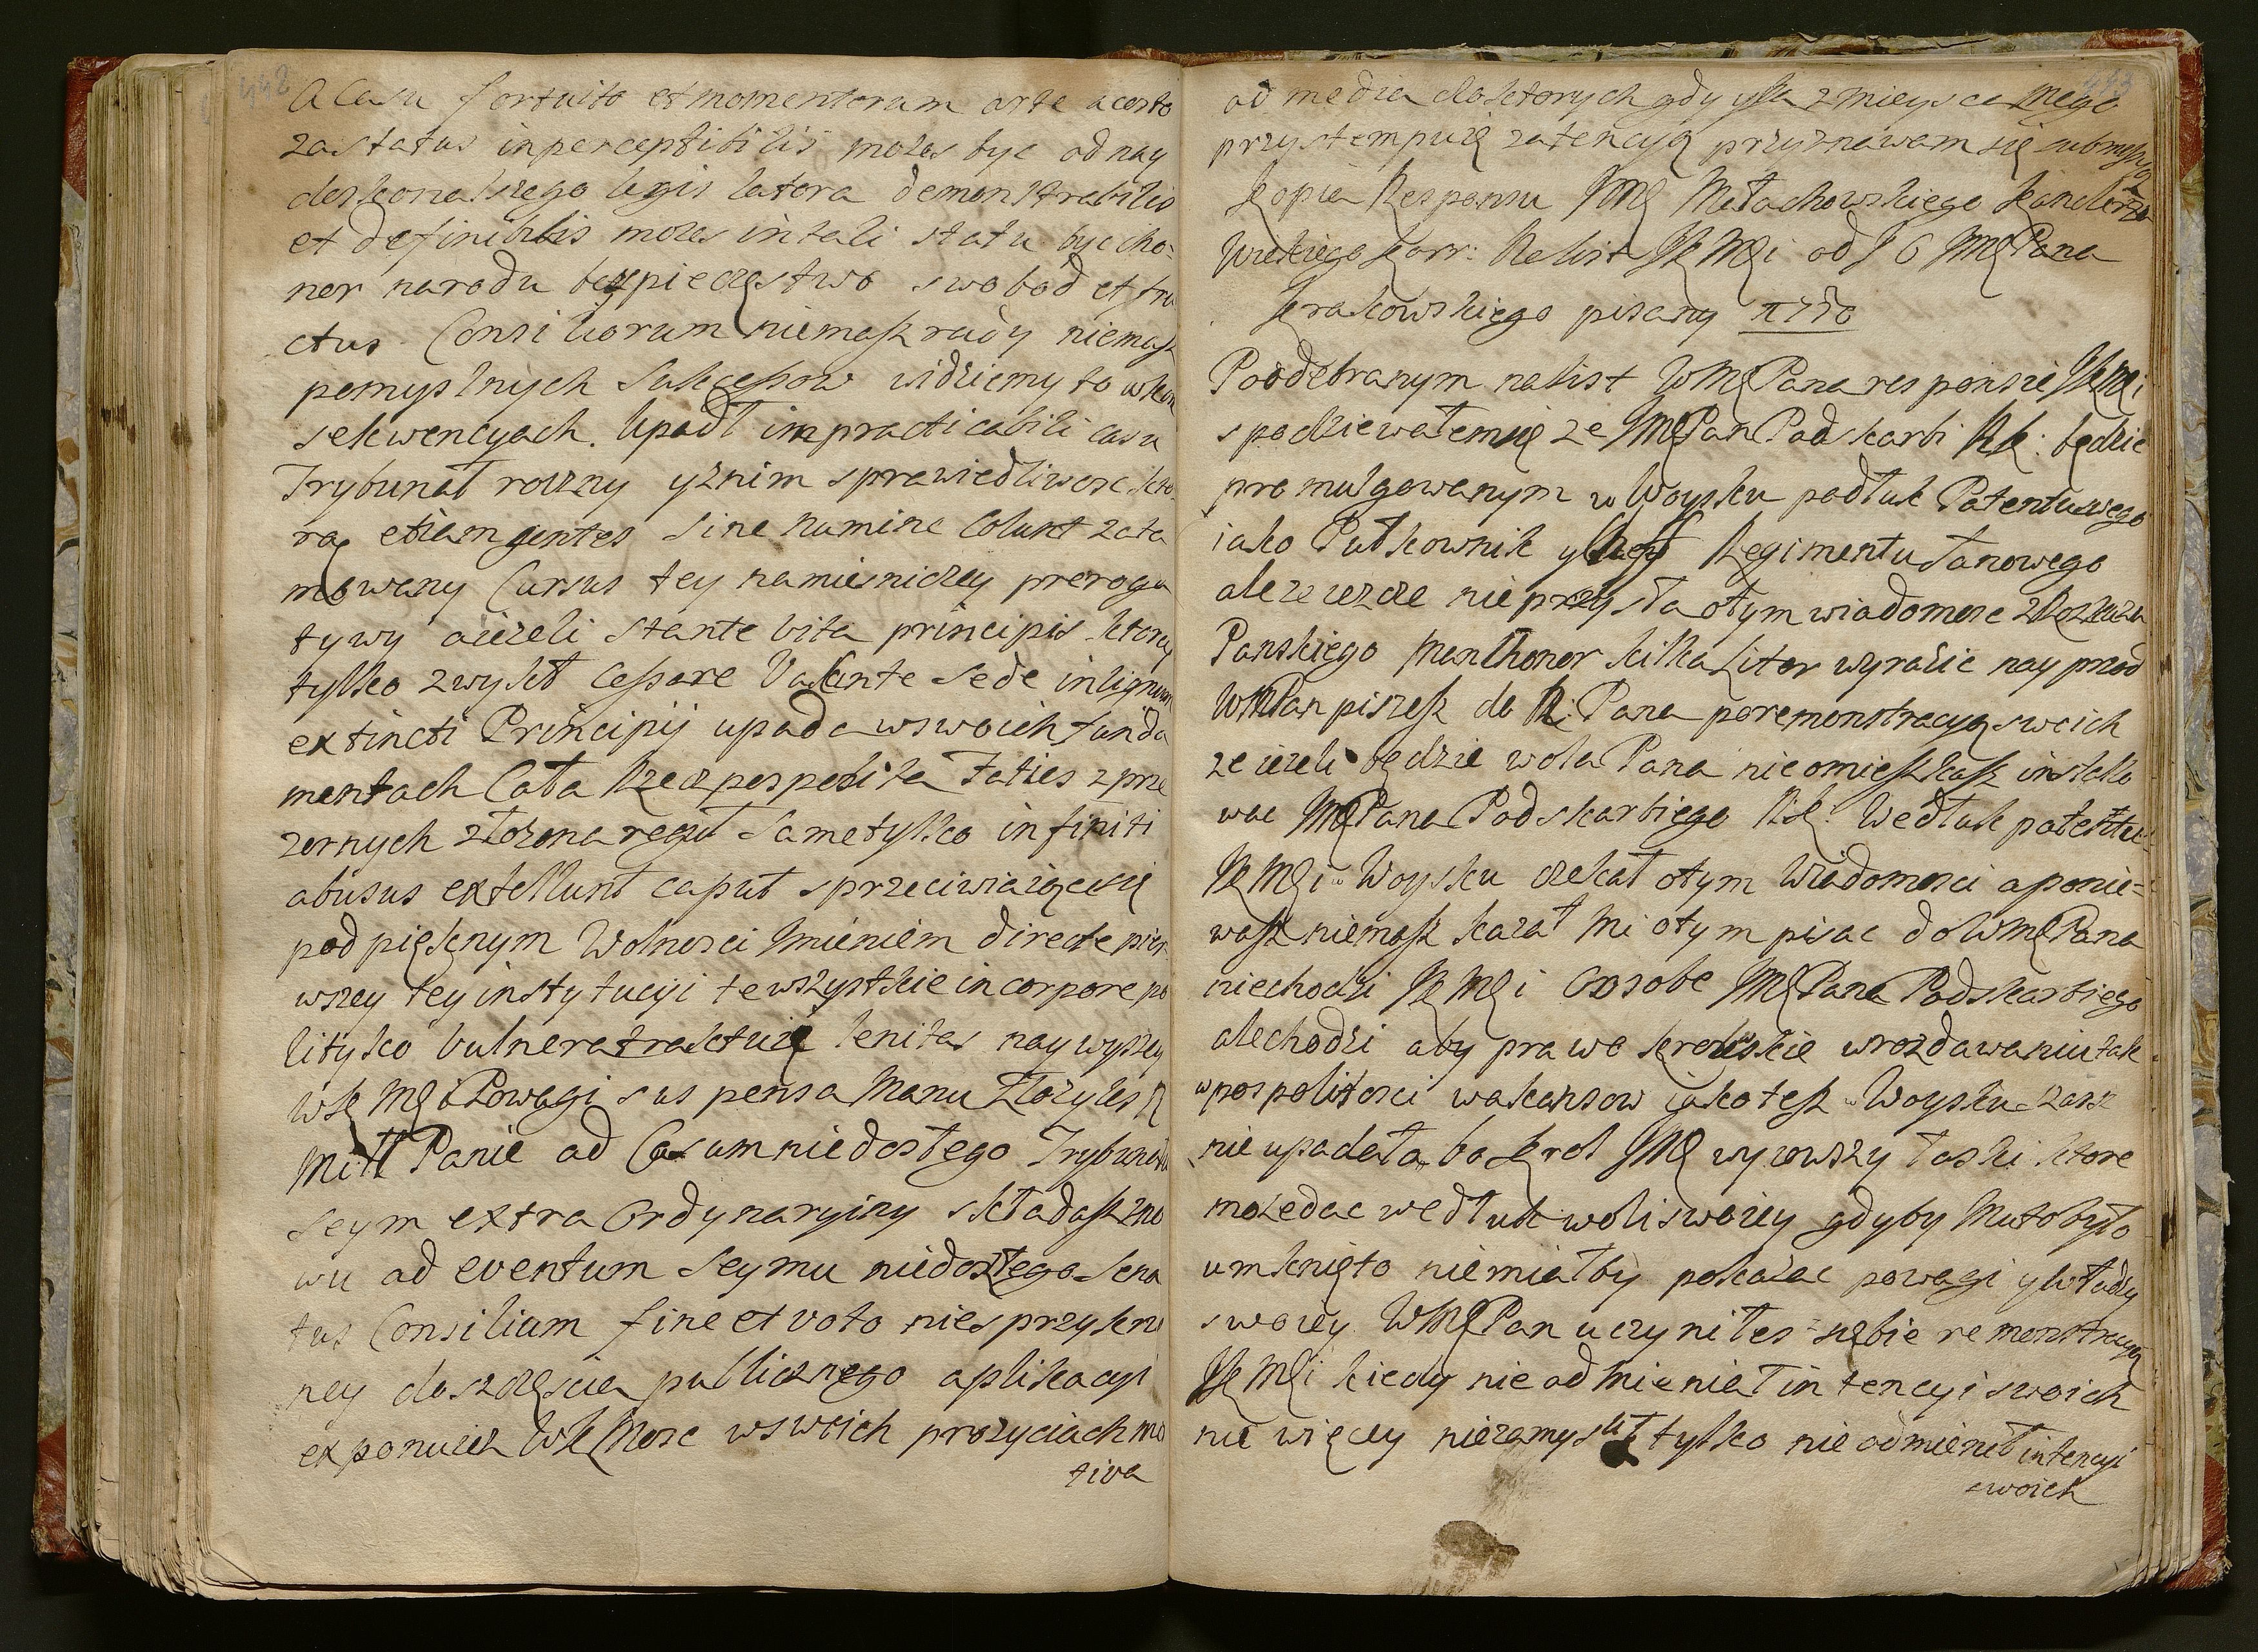 442
a Casu fortuito et momentorum arte a coz to
za status inperceptibilis mozes byc od nay
doskonalszego legis latora demonstrabilis
et definibilis mozes in tali statu byc ho=
nor narodu bezpieczęstwo swobod et fru
ctus Consiliorum niemasz rady niemasz
pomyslnych Sukcessow widziemy to w kon
sekwencyach. Upadł impracticabili casu
Trybunał roczny y znim sprawiedliwosc kto
rą etiam gentes sine numine Colunt zata
mowany Cursus tey namiesniczey preroga
tywy ieżeli stante vita principis ktory
tylko zwykł Cessare Vakante Sede in lignum
extincti Principij upada w swoich funda
mentach Cała Rzeczpospolita Toties z prze
zornych złożona reguł Same tylko infiniti
abusus extollunt caput sprzeciwiaiące się
pod pięknym Wolnosci Imieniem directe pier
wszey tey instytucyi te wszystkie in corpore po
lityko vulnera traktuię lenitas naywyszey
W K Mci Powagi suspensa Manu Złozyłes N
Miłł Panie ad Casum niedoszłego Trybunału
Seym extra Ordynaryiny składasz zno
wu ad eventum Seymu niedoszłego Sena
tus Consilium fine et voto niesprzykrzo
ney do szczęscia publicznego aplikacyi
exponuiesz W K Mosc w swoich prożyciach mo
tiva
443
ad media do ktorych gdy y Ja z mieysca Mego
przystempuię za tencyą przyznawam się submissyą
Kopia Responsu JMę Małachowskiego Kanclerza
Wielkiego Korr: Na list JKMci od J O JMę Pana
Krakowskiego pisany 1750
Po odebranym na list WMę Pana responsie JKMci
spodziewałem się ze JMę Pan Podskarbi Nk: będzie
promulgowanym w Woysku podług Patentu swego
iako Pułkownik y Szeff Regimentu Łanowego
ale ze ieszcze nie przyszła o tym wiadomosc z Rozkazu
Panskiego Mam honor kilka Liter wyrazic nayprzod
WMPan piszesz do N: Pana po remonstracyą swoich
ze ieżeli będzie wola Pana nieomieszkasz instalo
wac JMę Pana Podskarbiego Nk: Według patentu
JKMci w Woysku czekał o tym Wiadomosci a ponie=
wasz niemasz kazał mi o tym pisac do WMę Pana
niechodzi JKMci Oosobe JMę Pana Podskarbiego
ale chodzi aby prawo krolewskie w rozdawaniu tak
w pospolitosci wakansow iako tesz w Woysku zasz
nie upadało, bo Krol JMę wyiowszy łaski ktore
moze dac według woli swoiey gdyby Mu to było
umknięto niemiałby pokazac powagi y władzy
swoiey WMę Pan uczyniłes z siebie remonstracyą
JKMci kiedy nie odmieniał intencyi swoich
nic więcy niezamyslił tylko nie odmienił intencyi
swoich